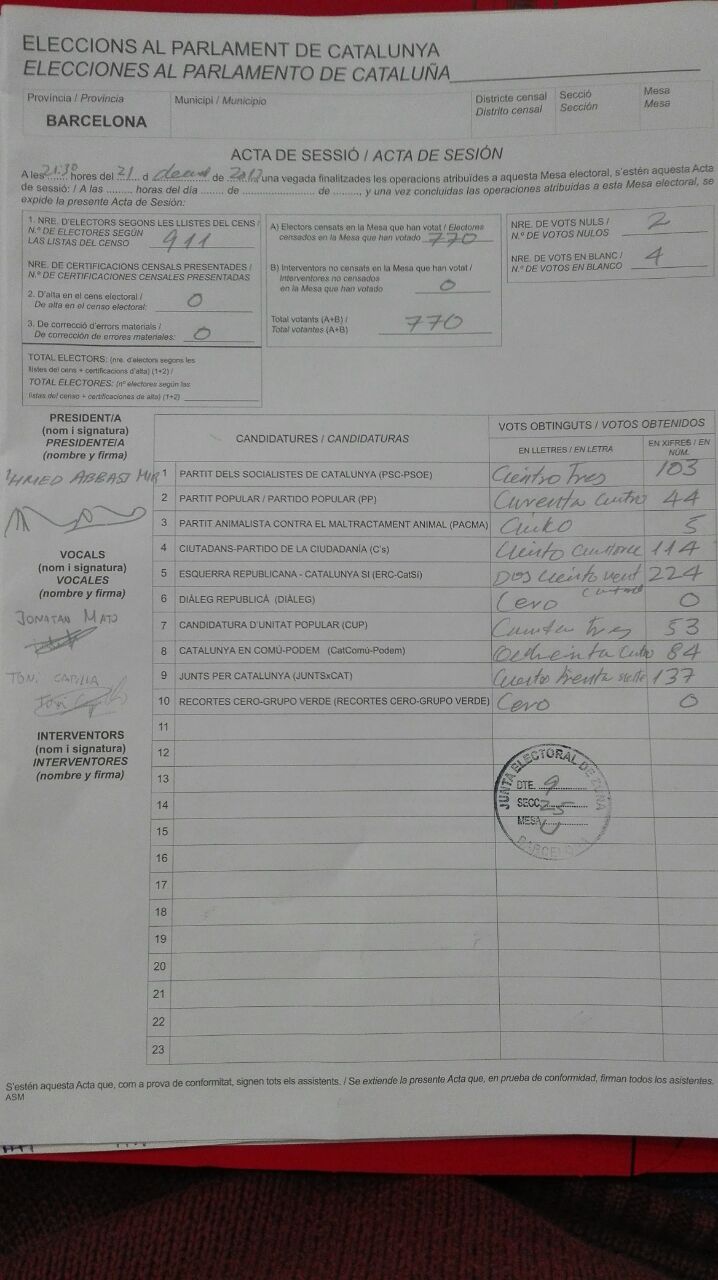 ELECCIONS AL PARLAMENT DE CATALUNYA
ELECCIONES AL PARLAMENTO DE CATALUÑA
Província / Provincia
BARCELONA
Municipi / Municipio
Districte censal
Distrito censal
Secció
Sección
Mesa
Mesa
ACTA DE SESSIÓ / ACTA DE SESIÓN
A les 21:30 hores del 21 d de 2017, una vegada finalitzades les operacions atribuïdes a aquesta Mesa electoral, s'estén aquesta Acta
de sessió: / A las ......... horas del día ........ de ........................ de ........., y una vez concluidas las operaciones atribuidas a esta Mesa electoral, se
expide la presente Acta de Sesión:
1. NRE. D'ELECTORS SEGONS LES LLISTES DEL CENS /
N.º DE ELECTORES SEGÚN
LAS LISTAS DEL CENSO 911
NRE. DE CERTIFICACIONS CENSALS PRESENTADES /
N.º DE CERTIFICACIONES CENSALES PRESENTADAS
2. D'alta en el cens electoral /
De alta en el censo electoral: 0
3. De correcció d'errors materials /
De corrección de errores materiales: 0
TOTAL ELECTORS: (nre. d'electors segons les
llistes del cens + certificacions d'alta) (1+2) /
TOTAL ELECTORES: (nº electores según las
listas del censo + certificaciones de alta) (1+2)
A) Electors censats en la Mesa que han votat / Electores
censados en la Mesa que han votado 770
B) Interventors no censats en la Mesa que han votat /
Interventores no censados
en la Mesa que han votado 0
Total votants (A+B) /
Total votantes (A+B) 770
NRE. DE VOTS NULS /
N.º DE VOTOS NULOS 2
NRE. DE VOTS EN BLANC /
N.º DE VOTOS EN BLANCO 4
PRESIDENT/A
(nom i signatura)
PRESIDENTE/A
(nombre y firma)
AHMED ABBASI MIR
VOCALS
(nom i signatura)
VOCALES
(nombre y firma)
JONATAN MATO
INTERVENTORS
(nom i signatura)
INTERVENTORES
(nombre y firma)
CANDIDATURES / CANDIDATURAS
VOTS OBTINGUTS / VOTOS OBTENIDOS
EN LLETRES / EN LETRA
EN XIFRES / EN NÚM.
1 PARTIT DELS SOCIALISTES DE CATALUNYA (PSC-PSOE) Ciento Tres 103
2 PARTIT POPULAR / PARTIDO POPULAR (PP) 44
3 PARTIT ANIMALISTA CONTRA EL MALTRACTAMENT ANIMAL (PACMA) 5
4 CIUTADANS-PARTIDO DE LA CIUDADANÍA (C's) 114
5 ESQUERRA REPUBLICANA - CATALUNYA SÍ (ERC-CatSí) 224
6 DIÀLEG REPUBLICÀ (DIÀLEG) Cero 0
7 CANDIDATURA D'UNITAT POPULAR (CUP) 53
8 CATALUNYA EN COMÚ-PODEM (CatComú-Podem) 84
9 JUNTS PER CATALUNYA (JUNTSxCAT) 137
10 RECORTES CERO-GRUPO VERDE (RECORTES CERO-GRUPO VERDE) Cero 0
11
12
13
14
15
16
17
18
19
20
21
22
23
JUNTA ELECTORAL DE ZONA
DTE. 9
SECC. 25
MESA U
BARCELONA
S'estén aquesta Acta que, com a prova de conformitat, signen tots els assistents. / Se extiende la presente Acta que, en prueba de conformidad, firman todos los asistentes.
ASM